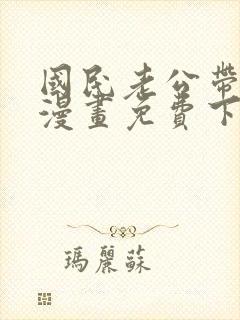 國民老公帶
漫畫免費下
瑪麗蘇